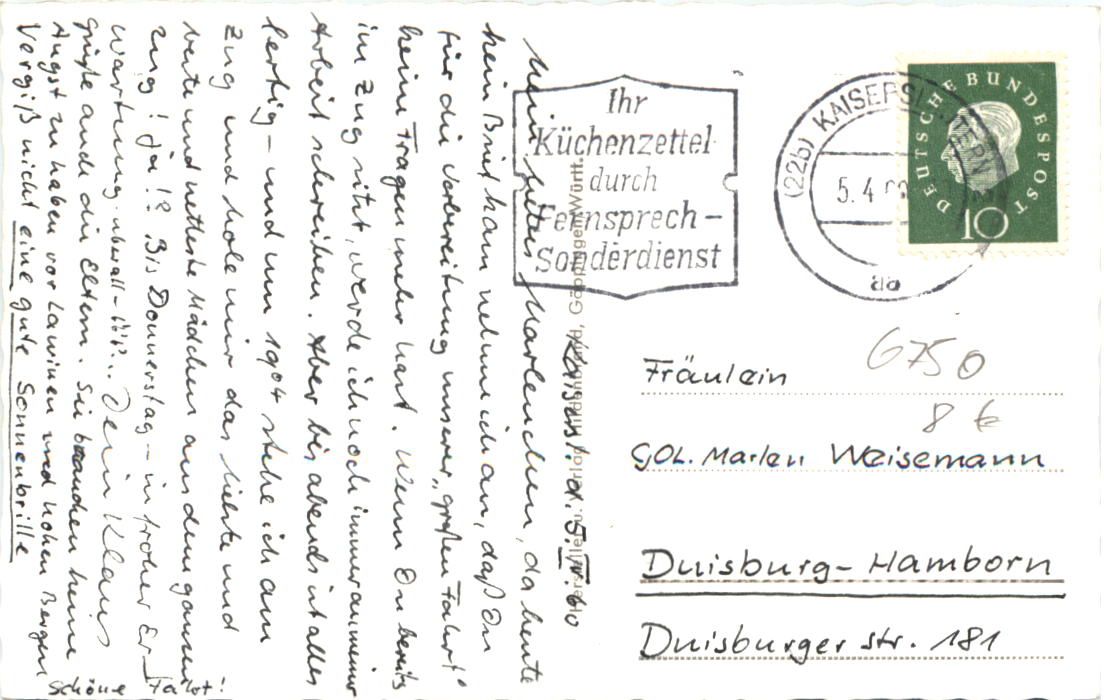 Kaisersl. d. 5. IV. 60
Mein gutes Marlenchen, da heute
kein Brief kam nehme ich an, daß Du
für die Vorbereitung unserer „großen Fahrt"
keine Fragen mehr hast. Wenn Du bereits
im Zug sitzt, werde ich noch immer an meiner
Arbeit schreiben. Aber bis abends ist alles
fertig - und um 19.04 stehe ich am
Zug und hole mir das liebste und
beste und netteste Mädchen aus dem ganzen
Zug! Ja!? Bis Donnerstag - in froher Er-
wartung - überall - Dein Klaus
Grüße auch die Eltern. Sie brauchen keine
Angst zu haben vor Lawinen und hohen Bergen
Vergiß nicht eine gute Sonnenbrille
Schöne Fahrt!
Ihr
Küchenzettel
durch
Fernsprech-
Sonderdienst
(22b) KAISERSLAUTERN
5.4.60
DEUTSCHE BUNDESPOST
10
Fräulein
GOL. Marlen Weisemann
Duisburg-Hamborn
Duisburger Str. 181
6750
8 €
Göppingen/Württ.